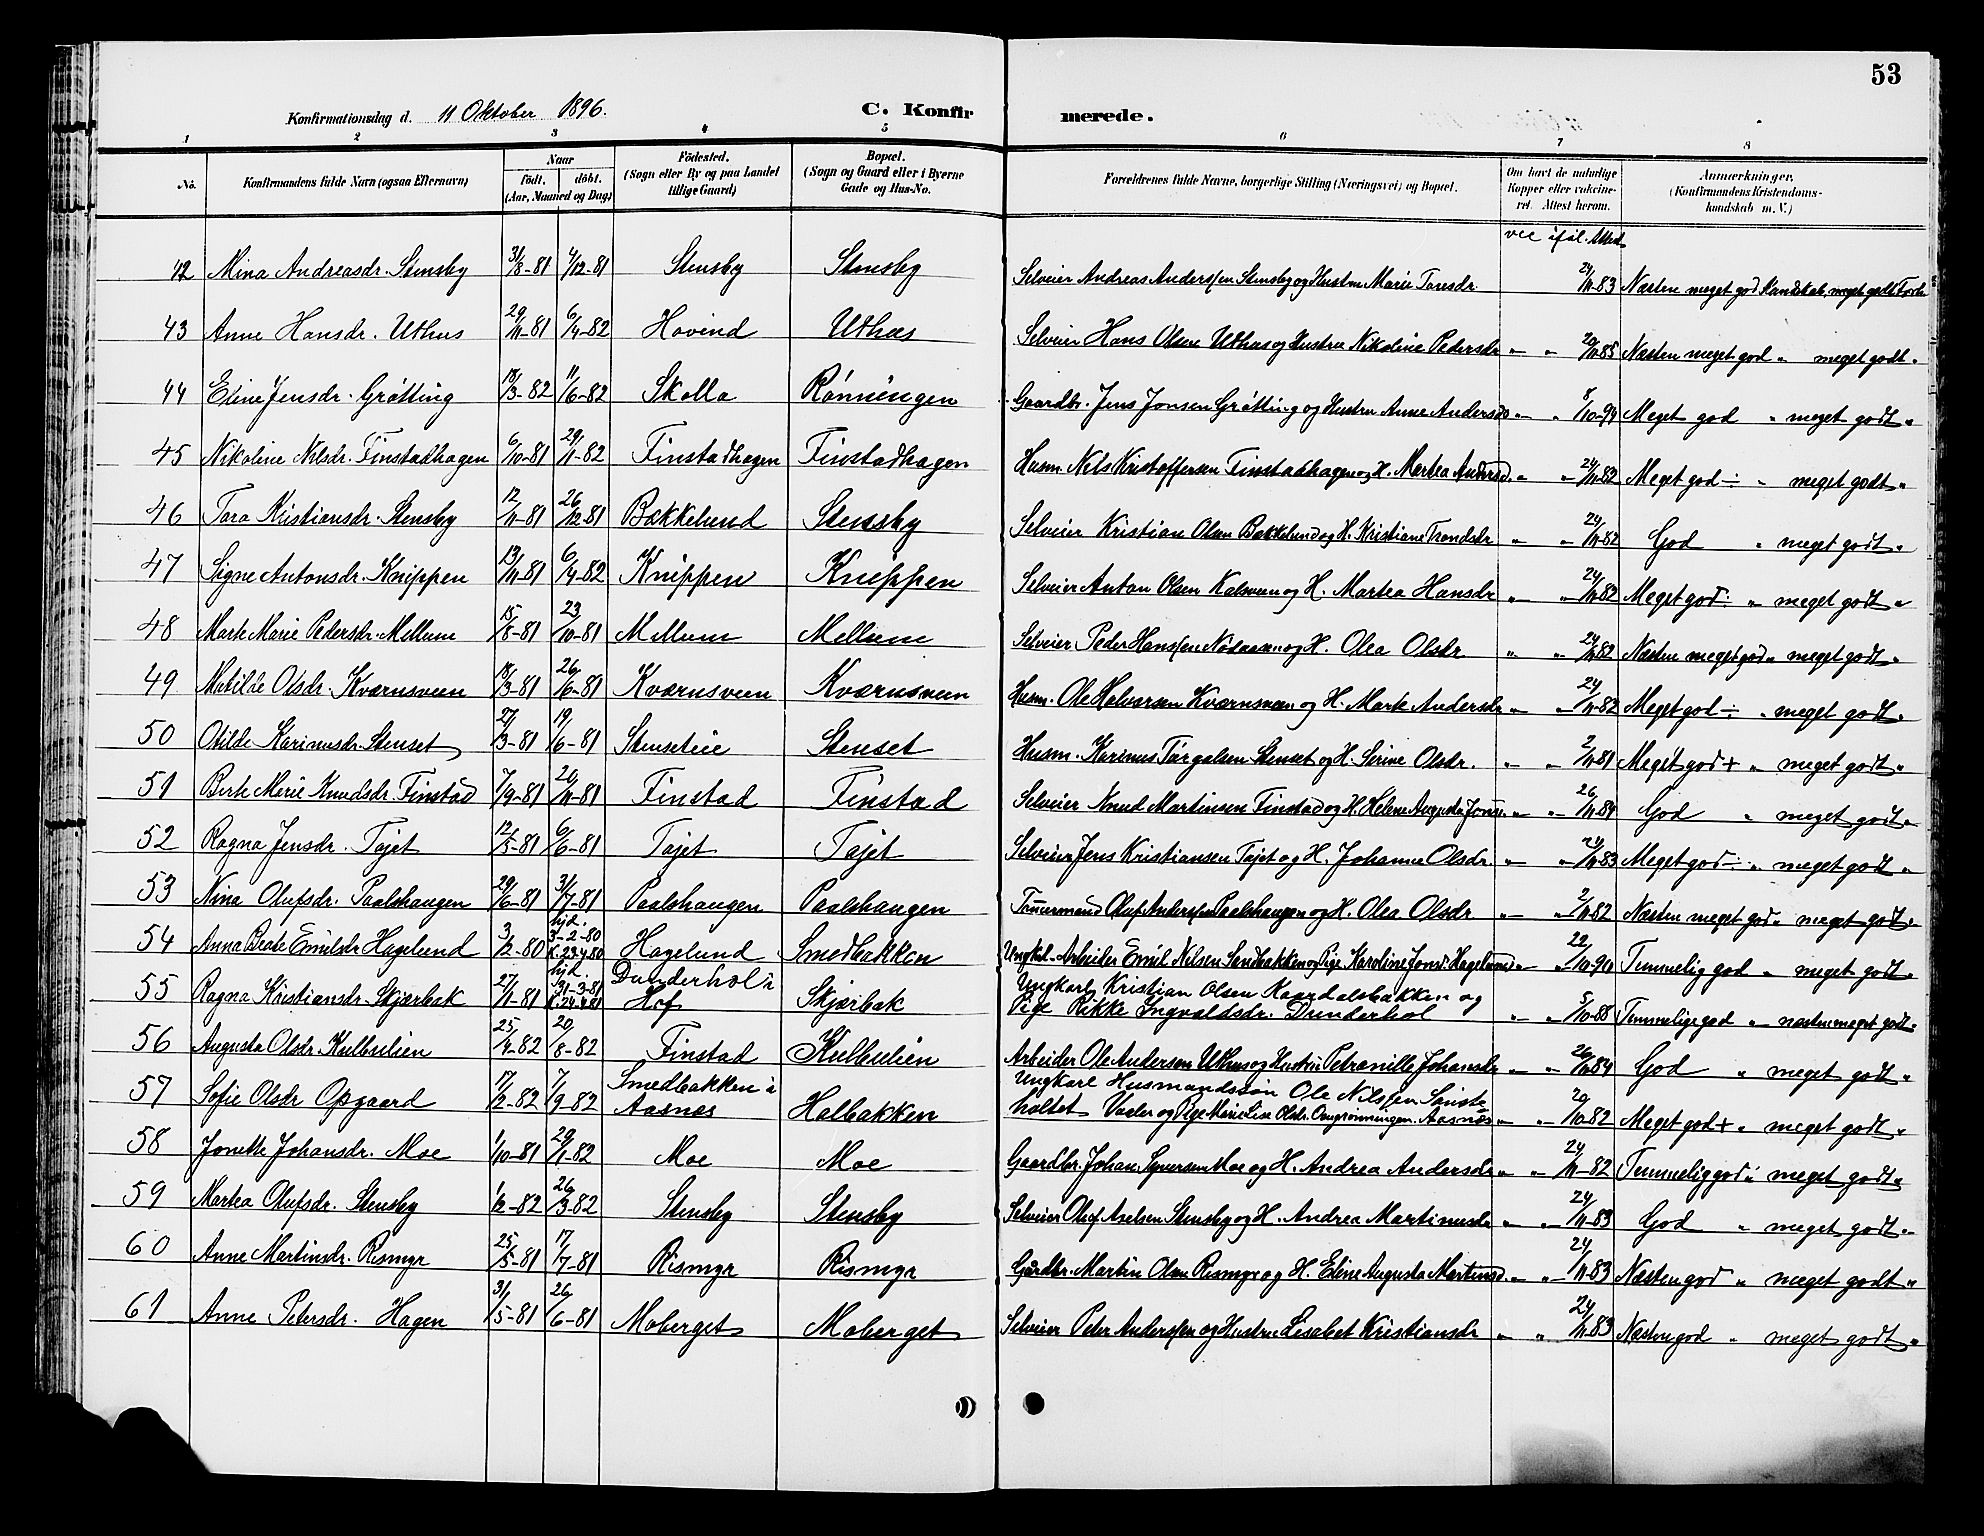 53
Konfirmationsdag d. 11 Oktober 1896. C. Konfirmerede.
1 2 3 4 5 6 7 8
No. Konfirmandens fulde Navn (ogsaa Efternavn) Naar födt. döbt. (Aar, Maaned og Dag) Födested. (Sogn eller By og paa Landet tillige Gaard) Bopæl. (Sogn og Gaard eller i Byerne Gade og Hus-No. Forældrenes fulde Navne, borgerlige Stilling (Næringsvei) og Bopæl. Om havt de naturlige Kopper eller vakcineret. Attest herom. Anmærkninger. (Konfirmandens Kristendomskundskab m. V.)
42 Mina Andreasdr. Stensby 31/8-81 4/12-81 Stensby Stensby Selveier Andreas Anderssen Stensby og Hustru Marie vac iføl. Attest 24/11-83 Næsten meget god Kundskab, meget godt Forh.
43 Anne Hansdr. Uthus 29/11-81 6/4-82 Hovind Uthus Selveier Hans Olsen Uthus og Hustru Nikoline Pedersdr " " 20/11-85 Næsten meget god " meget godt "
44 Eline Jensdr. Grøtting 18/3-82 11/6-82 Skolla Rønningen Gaardbr. Jens Jonsen Grøtting og Hustru Anne Andersd. " " 8/10-94 Meget god " meget godt "
45 Nikoline Nilsdr. Finstadhagen 6/10-81 29/1-82 Finstadhagen Finstadhagen Husm. Nils Kristoffersen Finstadhagen og H. Martea Andersd. " " 24/11-82 Meget god ÷ " meget godt "
46 Tara Kristiansdr. Stensby 12/11-81 26/12-81 Bakkelund Stensby Selveier Kristian Olsen Bakkelund og H. Kristiane Trondsdr " " 24/11-82 God " meget godt "
47 Signe Antonsdr. Knippen 13/11-81 6/4-82 Knippen Knippen Selveier Anton Olsen Kalsveen og H. Martea Hansdr " " 24/11-82 Meget god ÷ " meget godt "
48 Marte Marie Pedersdr. Mellum 15/8-81 23/10-81 Mellum Mellum Selveier Peder Hanssen og H. Olea Olsdr. " " 24/11-82 Næsten meget god " meget godt "
49 Matilde Olsdr. Kværnsveen 18/3-81 26/6-81 Kværnsveen Kværnsveen Husm. Ole Halvorsen Kværnsveen og H. Marte Andersdr " " 24/11-82 Meget god ÷ " meget godt "
50 Otilde Karinusdr. Stenset 27/3-81 19/6-81 Stenseteie Stenset Husm. Karinus Torgalsen Stenset og H. Serine Olsdr. " " 2/11-81 Meget god + " meget godt "
51 Berte Marie Knudsdr. Finstad 7/9-81 20/11-81 Finstad Finstad Selveier Knud Martinsen Finstad og H. Helene Augusta " " 26/11-84 God " meget godt "
52 Ragna Jensdr. Tajet 12/5-81 6/6-81 Tajet Tajet Selveier Jens Kristiansen Tajet og H. Johanne Olsdr. " " 24/11-83 Meget god ÷ " meget godt "
53 Nina Olufsdr. Paalshaugen 29/6-81 31/7-81 Paalshaugen Paalshaugen Tømmermand Oluf Anderssen Paalshaugen og H. Olea Olsdr " " 2/11-82 Næsten meget god " meget godt "
54 Anna Beate Emilsdr Hagelund 3/2-80 hjd. 3-2-80 K. 23.4.80 Hagelund Smedbakken Ungkl. Arbeider Emil Nilsen Sandbakken og Pige Karoline Jonsd. Hagelund " " 22/10-90 Temmelig god " meget godt "
55 Ragna Kristiansdr. Skjærbak 27/1-81 hjd. 31-3-81 K. 24.4.81 Dunderhol i Hof Skjærbak Ungkarl Kristian Olsen Kaardalsbakken og
Pige Rikke Ingvaldsdr. Dunderhol " " 5/10-88 Temmelig god " næsten meget godt "
56 Augusta Olsdr. Kulbulien 25/4-82 20/8-82 Finstad Kulbulien Arbeider Ole Andersen Uthus og Hustru Petronille Johansdr " " 26/11-84 God " meget godt "
57 Sofie Olsdr Opgaard 17/2-82 17/9-82 Smedbakken i Aasnæs Halbakken Ungkarl Husmandssøn Ole Nilssen Sønsteholtet Vaaler og Pige Marie Lise Olsdr. Aasnæs " " 20/10-82 Meget god + " meget godt "
58 Jonette Johansdr. Moe 1/10-81 29/1-82 Moe Moe Gaardbr. Johan Syversen Moe og H. Andrea Andersdr " " 24/11-82 Temmelig god " meget godt "
59 Martea Olufsdr. Stensby 1/2-82 26/3-82 Stensby Stensby Selveier Oluf Axelsen Stensby og H. Andrea Martinusdr " " 24/11-83 God " meget godt "
60 Anne Martinsdr. Rismyr 25/5-81 17/7-81 Rismyr Rismyr Gårdbr. Martin Olsen Rismyr og H. Eline Augusta Martinusd. " " 24/11-83 Næsten god " meget godt "
61 Anne Petersdr. Hagen 31/5-81 26/6-81 Moberget Moberget Selveier Peter Anderssen og Hustru Lisabet Kristiansdr " " 24/11-83 Næsten god " meget godt "